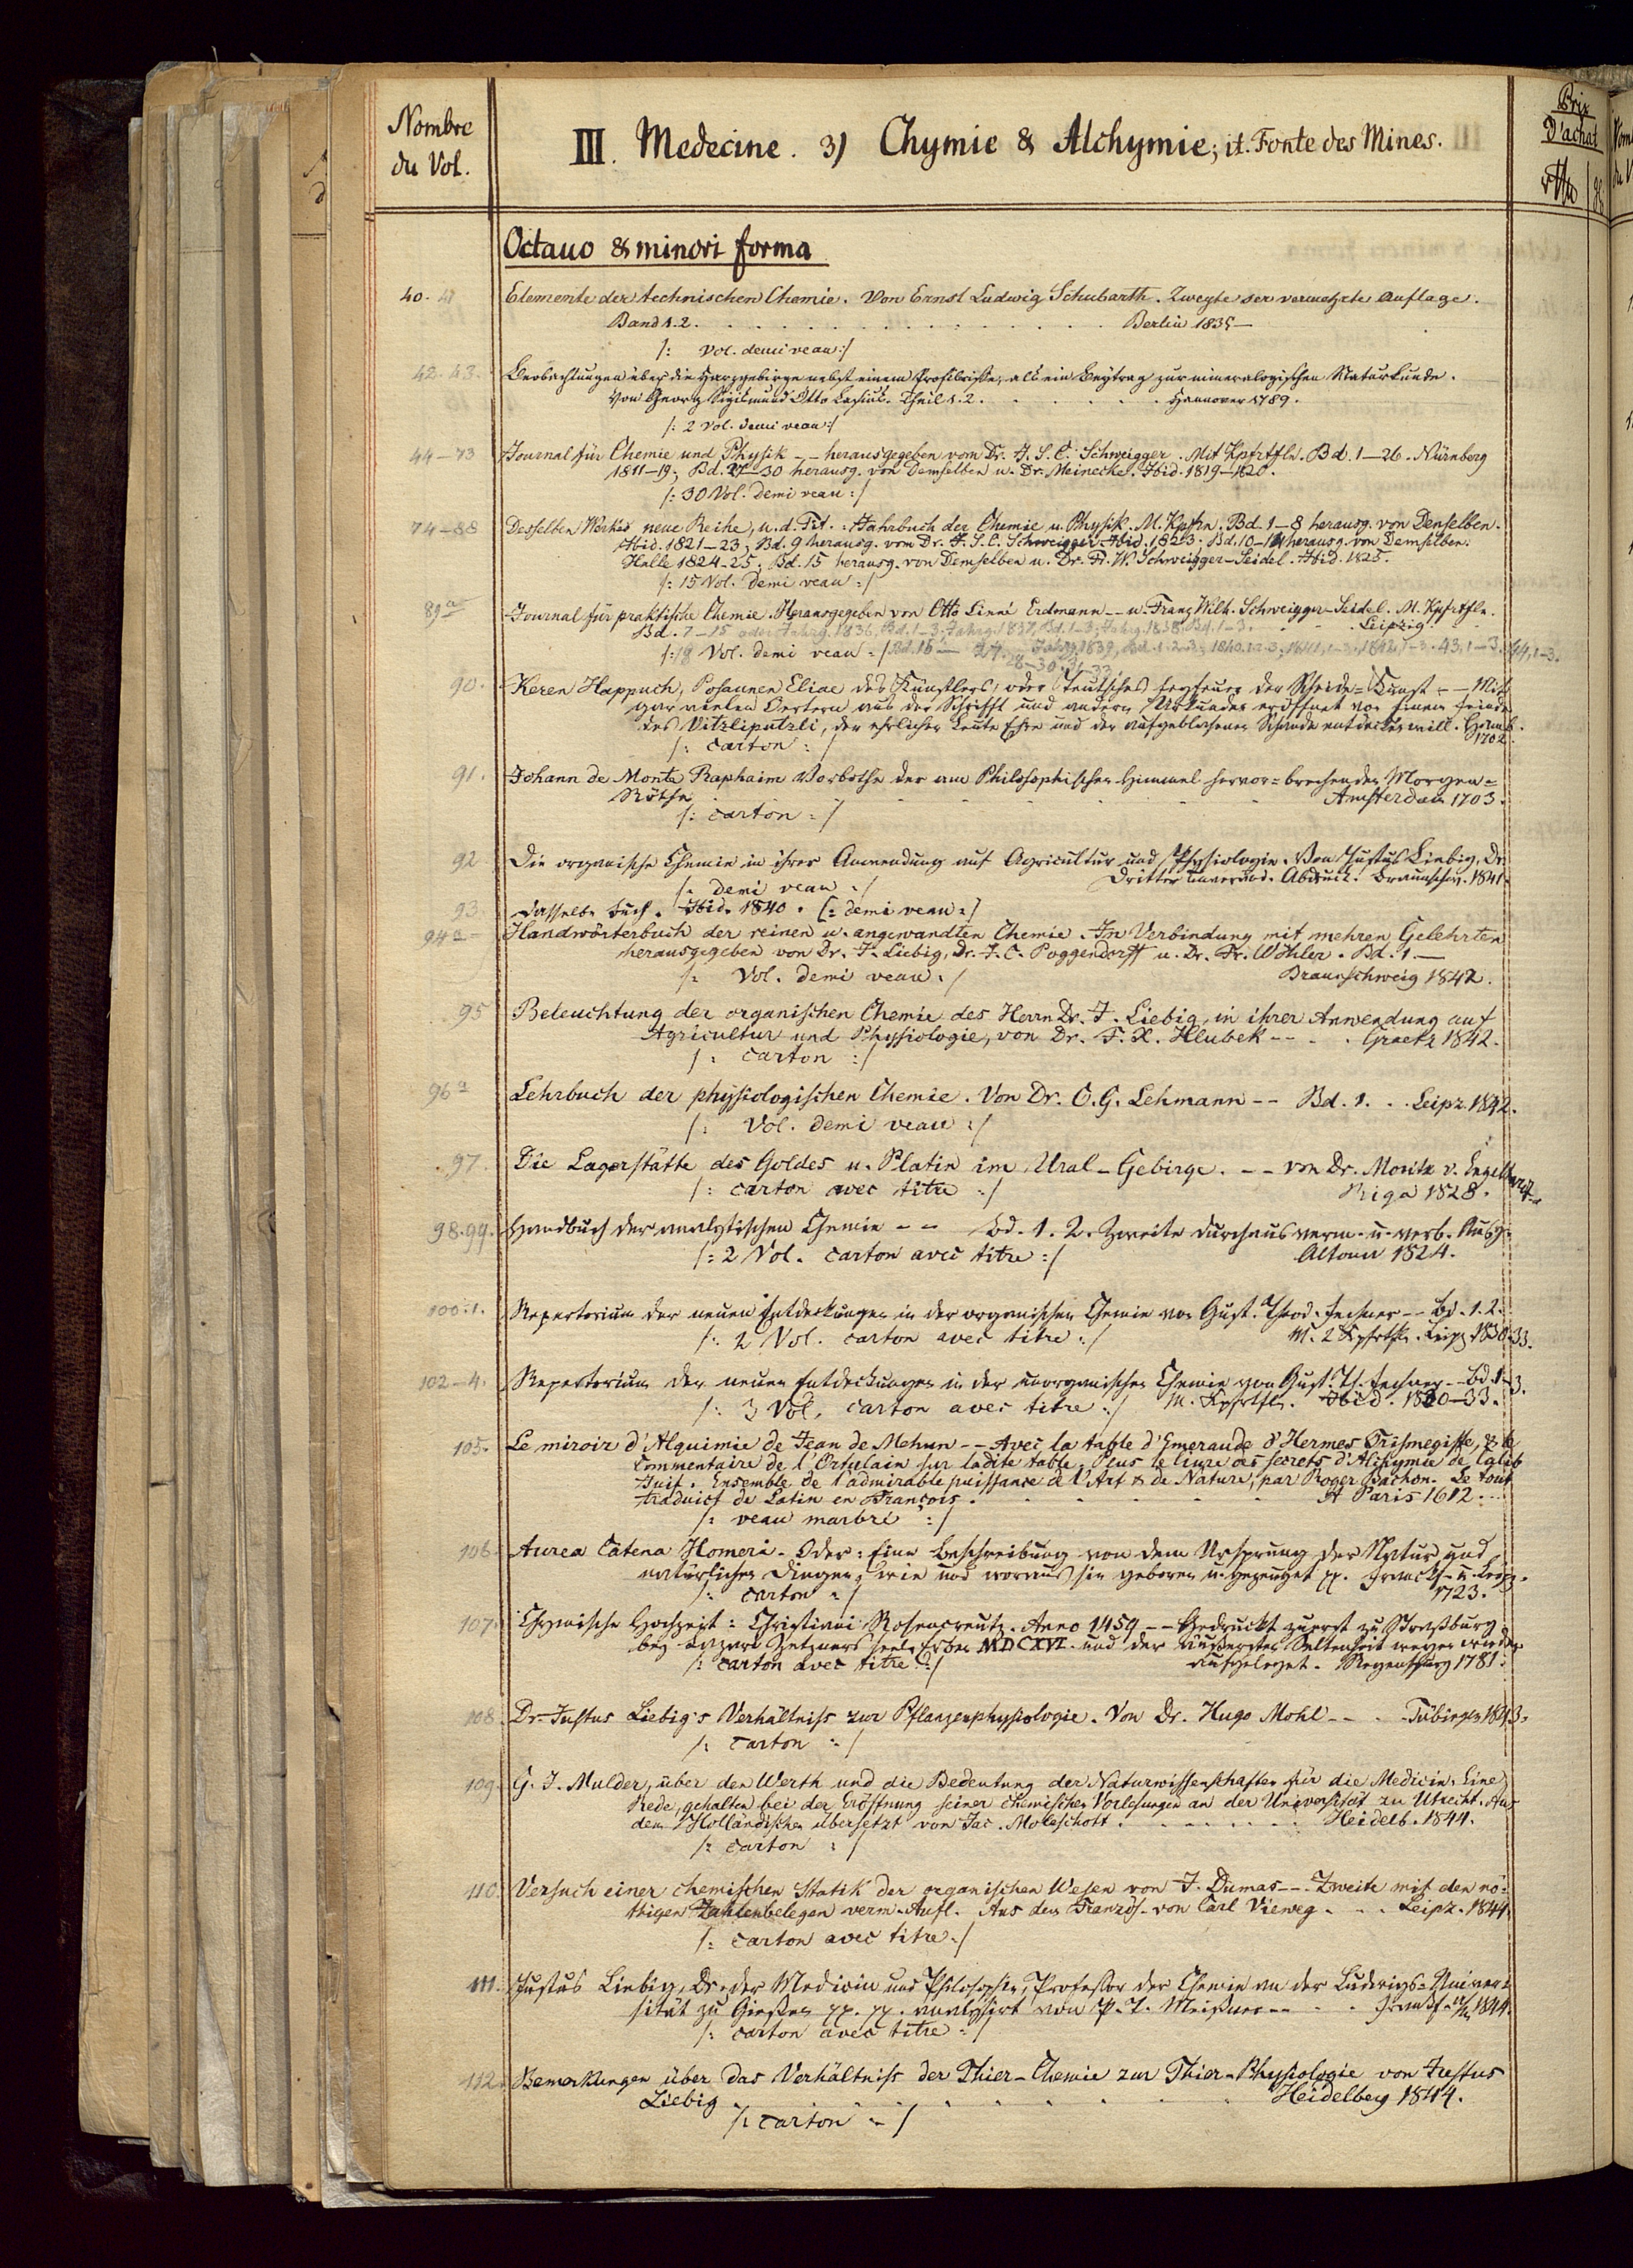 Nombre
du Vol.
III. Medecine. 3) Chymie & Alchymie; it. Fonte des Mines.
Prix
D'achat
Octauo & minori forma
40. 41 Elemente der technischen Chemie. Von Ernst Ludwig Schubarth. Zweyte ser vermehrte Auflage.
Band 1.2. Berlin 1835—
/: Vol. demi veau :/
42. 43. Beobachtungen über die Harzgebirge nebst einem Profilrisse, als ein Beytrag zur mineralogischen Naturkunde.
Von Georg Sigismund Otto Lasius. Theil 1.2. Hannover 1789.
/: 2 Vol. demi veau :/
44—73 Journal für Chemie und Physik -- herausgegeben vom Dr. J. S. C. Schweigger. Mit Kpfrtfln. Bd. 1—26. Nürnberg
1811—19; Bd. 27—30 herausg. von Demselben u. Dr. Meinecke. Ibid. 1819—1820.
/: 30 Vol. demi veau :/
74—88 Desselben Werkes neue Reihe, u. d. Tit.: Jahrbuch der Chemie u. Physik. M. Kpfrn. Bd. 1—8 herausg. von Denselben.
Ibid. 1821—23; Bd. 9 herausg. vom Dr. J. S. C. Schweigger. Ibid. 1823. Bd. 10—14 herausg. von Demselben.
Halle 1824-25; Bd. 15 herausg. von Demselben u. Dr. Fr. W. Schweigger-Seidel. Ibid. 1825.
/: 15 Vol. demi veau :/
89a— Journal für praktische Chemie. Herausgegeben von Otto Linné Erdmann -- u. Franz Wilh. Schweigger-Seidel. M. Kpfrtfln.
Bd. 7—15 oder Jahrg. 1836, Bd. 1—3; Jahrg. 1837, Bd. 1—3; Jahrg. 1838, Bd. 1—3. Leipzig
/: 18 Vol. demi veau :/ Bd. 16— 27. Jahrg. 1839, Bd. 1.2.3; 1840.1.2.3; 1841, 1—3. 1842, 1—3. 43, 1—3. 44, 1—3.
28—30. 31—33.
90. Keren Happuch, Posaunen Eliae des Künstlers, oder Teutsches Fegfeuer der Scheide-Kunst -- Mit
gar vielen Oertern aus der Schrifft und andern Urkunden eröffnet von Einem Feinde
des Vitzliputzli, der ehrlicher Leute Ehre und der aufgeblasenen Schande entdecken will. Hamb.
/: carton :/ 1702.
91. Johann de Monte Raphaim Vorbothe der am Philosophischen Himmel hervor-brechenden Morgen-
Röthe Amsterdam 1703.
/: carton :/
92 Die organische Chemie in ihrer Anwendung auf Agricultur und Physiologie. Von Justus Liebig, Dr.
/: demi veau :/ Dritter unveränd. Abdruck. Braunschw. 1841.
93. Dasselbe Buch. Ibid. 1840. /: demi veau :/
94a— Handwörterbuch der reinen u. angewandten Chemie. In Verbindung mit mehren Gelehrten
herausgegeben von Dr. J. Liebig, Dr. J. C. Poggendorff u. Dr. Fr. Wöhler. Bd. 1—
/: Vol. demi veau :/ Braunschweig 1842.
95 Beleuchtung der organischen Chemie des Herrn Dr. J. Liebig, in ihrer Anwendung auf
Agricultur und Physiologie, von Dr. F. X. Hlubek -- Graetz 1842.
/: carton :/
96a Lehrbuch der physiologischen Chemie. Von Dr. C. G. Lehmann -- Bd. 1. Leipz. 1842.
/: Vol. demi veau :/
97. Die Lagerstätte des Goldes u. Platin im Ural-Gebirge. -- von Dr. Moritz v. Engelhardt
/: carton avec titre :/ Riga 1828.
98.99. Handbuch der analytischen Chemie -- Bd. 1. 2. Zweite durchaus verm. u. verb. Ausg.
/: 2 Vol. carton avec titre :/ Altona 1824.
100.1. Repertorium der neuen Entdeckungen in der organischen Chemie von Gust. Theod. Fechner -- Bd. 1. 2.
/: 2 Vol. carton avec titre :/ M. 2 Kpfrtfln. Leipz. 1830-33.
102—4. Repertorium der neuen Entdeckungen in der unorganischen Chemie von Gust. Th. Fechner -- Bd. 1-3.
/: 3 Vol. carton avec titre :/ M. Kpfrtfln. Ibid. 1830—33.
105. Le miroir d'Alquimie de Jean de Mehun -- Avec la table d'Emeraude d'Hermes Trismegiste, & le
Commentaire de l'Ortulain sur ladite table. Plus le livre des secrets d'Alkymie de Calib
Juif. Ensemble de l'admirable puissance de l'Art & de Nature, par Roger Bachon. Le tout
traduict de Latin en François. A Paris 1612.
/: veau marbré :/
106. Aurea Catena Homeri. Oder: Eine Beschreibung von dem Ursprung der Natur und
natürlichen Dingen, wie und woraus sie geboren u. gezeuget pp. Franckf. u. Leipz.
/: carton :/ 1723.
107. Chymische Hochzeit: Christiani Rosencreutz. Anno 1459 -- Gedruckt zuerst zu Straßburg
bey Lazari Zetzners seel. Erben MDCXVI. und der äußersten Seltenheit wegen wieder
/: carton avec titre :/ aufgeleget. Regensburg 1781.
108. Dr. Justus Liebig's Verhältniss zur Pflanzenphysiologie. Von Dr. Hugo Mohl -- Tübingen 1843.
/: carton :/
109. G. J. Mulder, über den Werth und die Bedeutung der Naturwissenschaften für die Medicin. Eine
Rede, gehalten bei der Eröffnung seiner chemischen Vorlesungen an der Universität zu Utrecht. Aus
dem Holländischen übersetzt von Jac. Moleschott. Heidelb. 1844.
/: carton :/
110. Versuch einer chemischen Statik der organischen Wesen von J. Dumas --. Zweite mit den nö-
thigen Zahlenbelegen verm. Aufl. Aus dem Französ. von Carl Vieweg. Leipz. 1844.
/: carton avec titre :/
111. Justus Liebig, Dr. der Medicin und Philosophie, Professor der Chemie an der Ludwigs-Univer-
sität zu Gießen pp. pp. analysirt von P. T. Meißner -- Frankf. a/M 1844.
/: carton avec titre :/
112. Bemerkungen über das Verhältniss der Thier-Chemie zur Thier-Physiologie von Justus
Liebig Heidelberg 1844.
/: carton :/